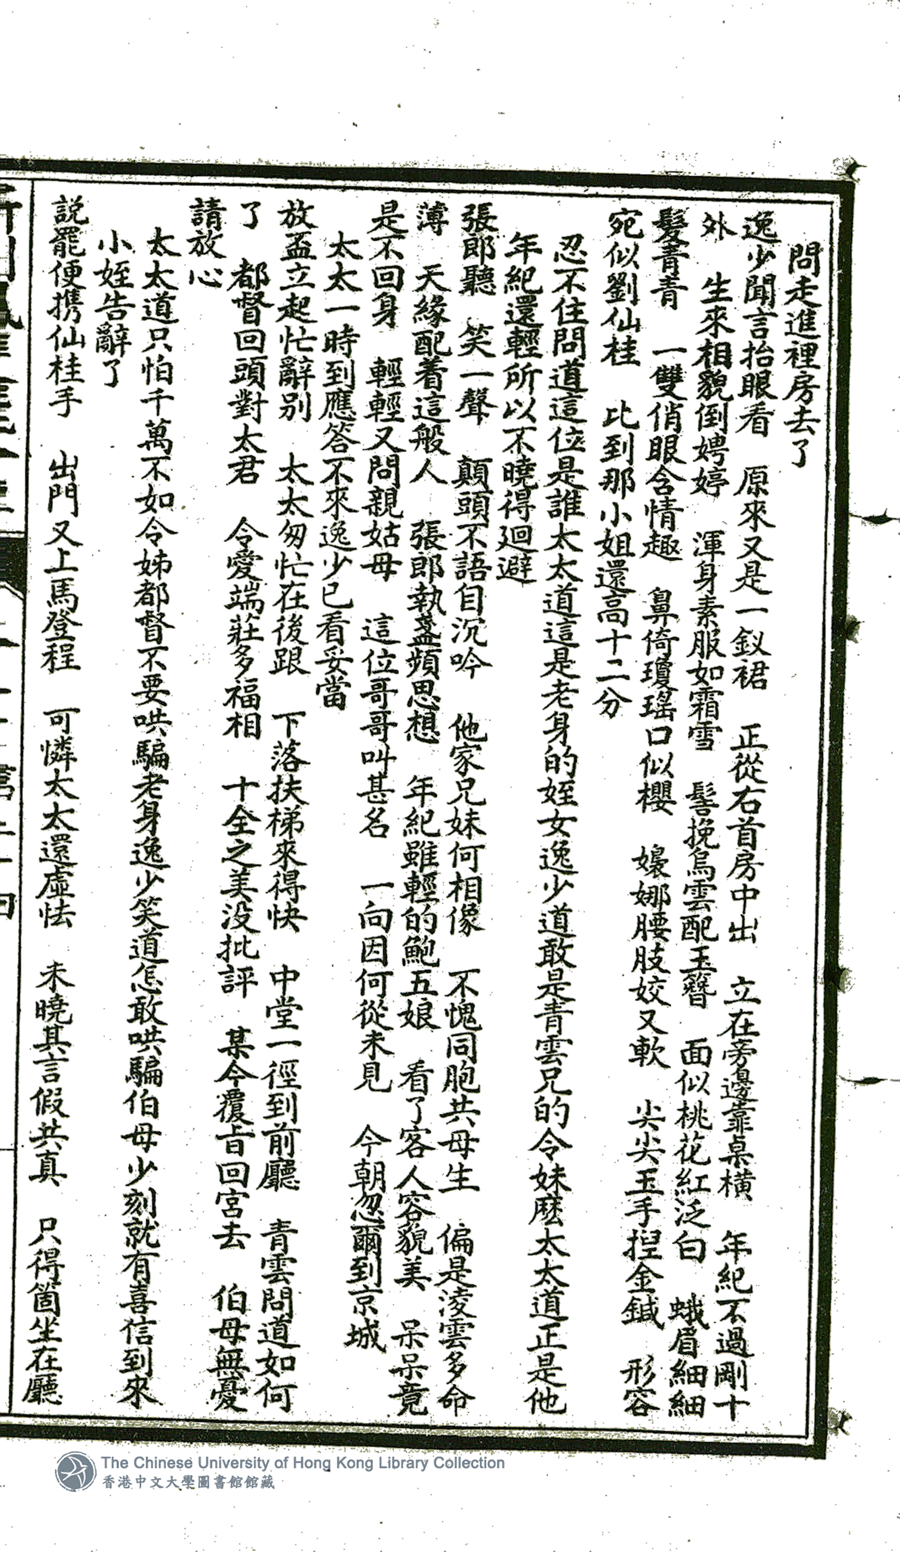 問走進裡房去了
逸少聞言抬眼看　原來又是一釵裙　正從右首房中出　立在旁邊靠桌橫　年紀不過剛十
外　生來相貌倒娉婷　渾身素服如霜雪　髻挽烏雲配玉簪　面似桃花紅泛白　蛾眉細細
髮青青　一雙俏眼含情趣　鼻倚瓊瑤口似櫻　嬝娜腰肢姣又軟　尖尖玉手揑金鍼　形容
宛似劉仙桂　比到那小姐還高十二分
忍不住問道這位是誰太太道這是老身的姪女逸少道敢是青雲兄的令妹麽太太道正是他
年紀還輕所以不曉得迴避
張郎聽　笑一聲　顛頭不語自沉吟　他家兄妹何相像　不愧同胞共母生　偏是淩雲多命
薄　天緣配着這般人　張郎執盞頻思想　年紀雖輕的鮑五娘　看了客人容貌美　呆呆竟
是不回身　輕輕又問親姑母　這位哥哥叫甚名　一向因何從未見　今朝忽爾到京城
太太一時到應答不來逸少已看妥當
放盃立起忙辭别　太太匆忙在後跟　下落扶梯來得快　中堂一徑到前廳　青雲問道如何
了　都督回頭對太君　令愛端莊多福相　十全之美没批評　某今覆旨回宮去　伯母無憂
請放心
太太道只怕千萬不如令姊都督不要哄騙老身逸少笑道怎敢哄騙伯母少刻就有喜信到來
小姪告辭了
説罷便携仙桂手　出門又上馬登程　可憐太太還虛怯　未曉其言假共真　只得箇坐在廳
The Chinese University of Hong Kong Library Collection
香港中文大學圖書館館藏